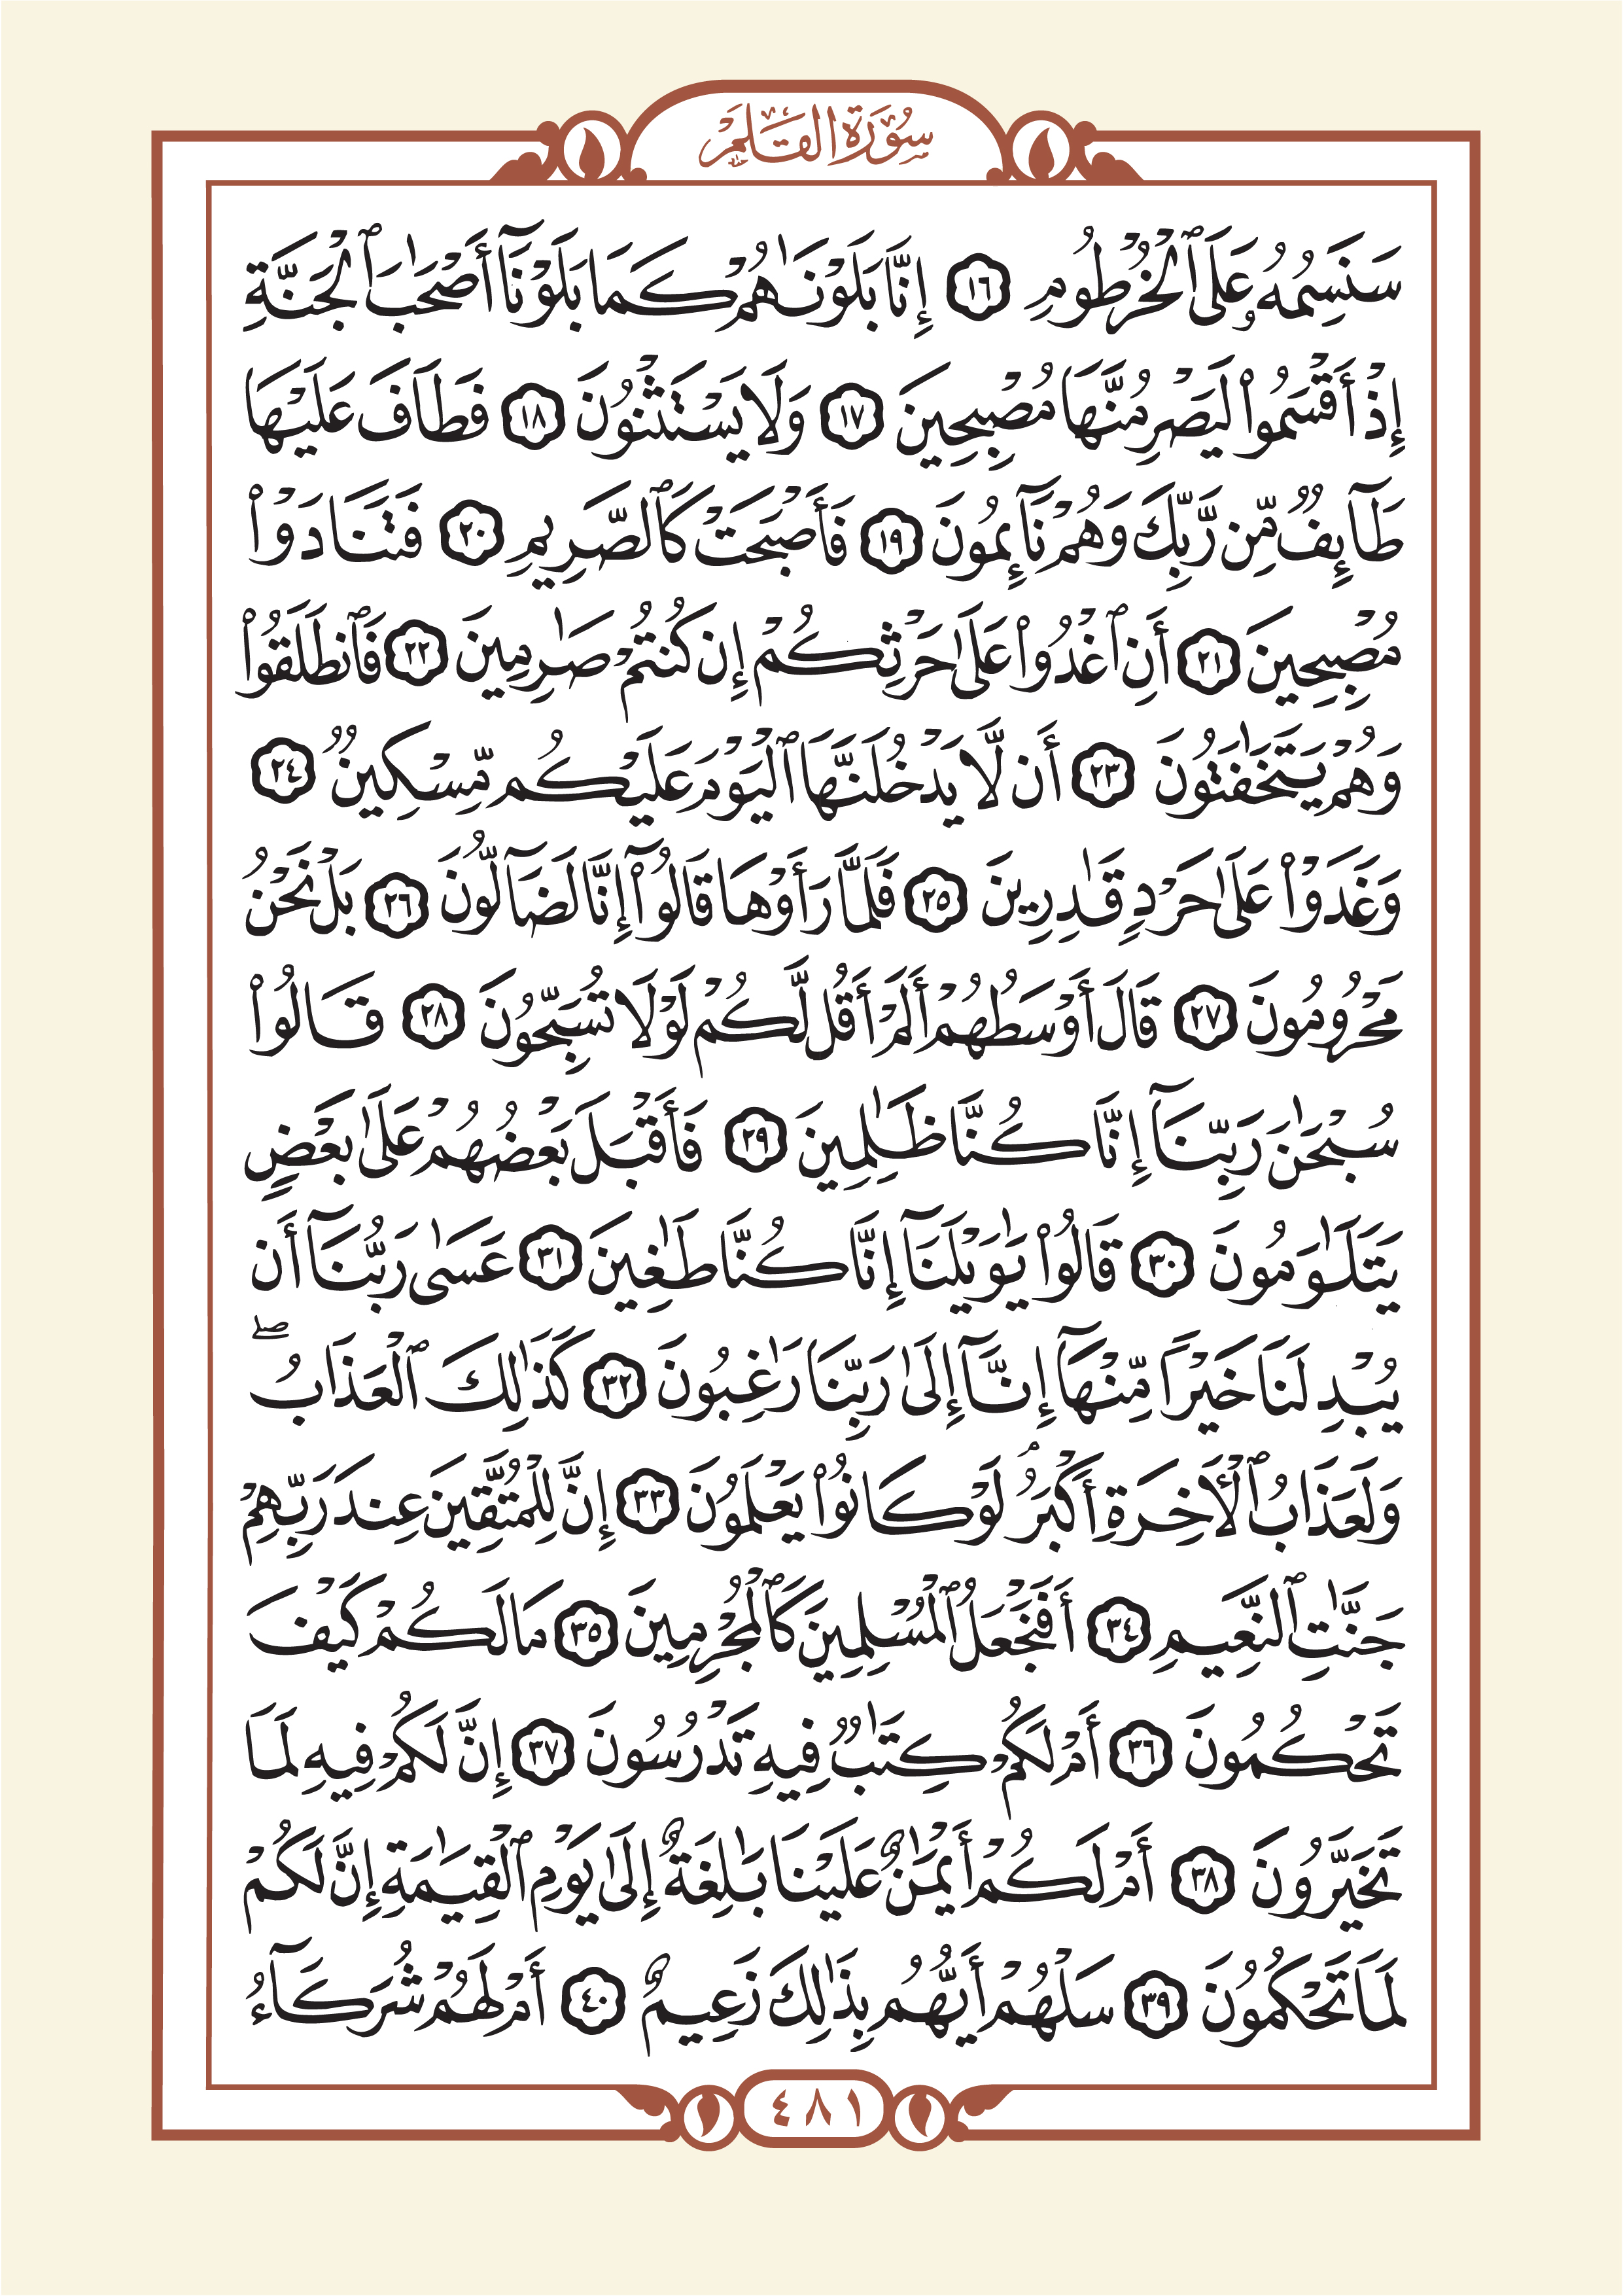 سُورَةُ القَلَمِ
سَنَسِمُهُۥ عَلَى ٱلْخُرْطُومِ ١٦ إِنَّا بَلَوْنَٰهُمْ كَمَا بَلَوْنَآ أَصْحَٰبَ ٱلْجَنَّةِ
إِذْ أَقْسَمُوا۟ لَيَصْرِمُنَّهَا مُصْبِحِينَ ١٧ وَلَا يَسْتَثْنُونَ ١٨ فَطَافَ عَلَيْهَا
طَآئِفٌ مِّن رَّبِّكَ وَهُمْ نَآئِمُونَ ١٩ فَأَصْبَحَتْ كَٱلصَّرِيمِ ٢٠ فَتَنَادَوْا۟
مُصْبِحِينَ ٢١ أَنِ ٱغْدُوا۟ عَلَىٰ حَرْثِكُمْ إِن كُنتُمْ صَٰرِمِينَ ٢٢ فَٱنطَلَقُوا۟
وَهُمْ يَتَخَٰفَتُونَ ٢٣ أَن لَّا يَدْخُلَنَّهَا ٱلْيَوْمَ عَلَيْكُم مِّسْكِينٌ ٢٤
وَغَدَوْا۟ عَلَىٰ حَرْدٍ قَٰدِرِينَ ٢٥ فَلَمَّا رَأَوْهَا قَالُوٓا۟ إِنَّا لَضَآلُّونَ ٢٦ بَلْ نَحْنُ
مَحْرُومُونَ ٢٧ قَالَ أَوْسَطُهُمْ أَلَمْ أَقُل لَّكُمْ لَوْلَا تُسَبِّحُونَ ٢٨ قَالُوا۟
سُبْحَٰنَ رَبِّنَآ إِنَّا كُنَّا ظَٰلِمِينَ ٢٩ فَأَقْبَلَ بَعْضُهُمْ عَلَىٰ بَعْضٍ
يَتَلَٰوَمُونَ ٣٠ قَالُوا۟ يَٰوَيْلَنَآ إِنَّا كُنَّا طَٰغِينَ ٣١ عَسَىٰ رَبُّنَآ أَن
يُبْدِلَنَا خَيْرًا مِّنْهَآ إِنَّآ إِلَىٰ رَبِّنَا رَٰغِبُونَ ٣٢ كَذَٰلِكَ ٱلْعَذَابُ ۖ
وَلَعَذَابُ ٱلْأَخِرَةِ أَكْبَرُ ۚ لَوْ كَانُوا۟ يَعْلَمُونَ ٣٣ إِنَّ لِلْمُتَّقِينَ عِندَ رَبِّهِمْ
جَنَّٰتِ ٱلنَّعِيمِ ٣٤ أَفَنَجْعَلُ ٱلْمُسْلِمِينَ كَٱلْمُجْرِمِينَ ٣٥ مَا لَكُمْ كَيْفَ
تَحْكُمُونَ ٣٦ أَمْ لَكُمْ كِتَٰبٌ فِيهِ تَدْرُسُونَ ٣٧ إِنَّ لَكُمْ فِيهِ لَمَا
تَخَيَّرُونَ ٣٨ أَمْ لَكُمْ أَيْمَٰنٌ عَلَيْنَا بَٰلِغَةٌ إِلَىٰ يَوْمِ ٱلْقِيَٰمَةِ إِنَّ لَكُمْ
لَمَا تَحْكُمُونَ ٣٩ سَلْهُمْ أَيُّهُم بِذَٰلِكَ زَعِيمٌ ٤٠ أَمْ لَهُمْ شُرَكَآءُ
٤٨١